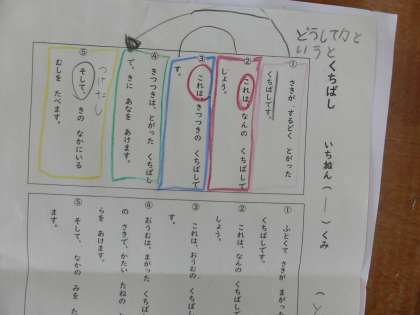 どうしてかと
いうと
くちばし
いちねん（　）くみ　（
① さきが するどく とがった
くちばしです。
② これは、なんの くちばしで
しょう。
③ これは、きつつきの くちばしで
す。
④ きつつきは、とがった くちばし
で、きに あなを あけます。
つけたし
⑤ そして、きの なかにいる
むしを たべます。
① ふとくて さきが まがっ
くちばしです。
② これは、なんの くちばしで
しょう。
③ これは、おうむの くちばしで
す。
④ おうむは、まがった くちば
の さきで、かたい たねの
らを あけます。
⑤ そして、なかの みを た
ます。